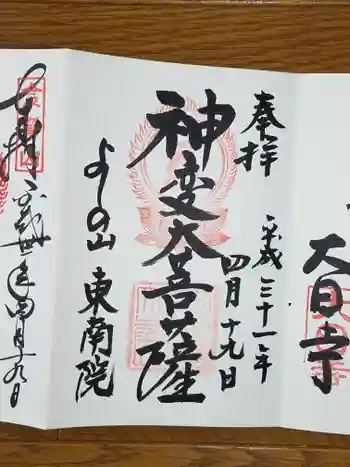 大日寺
奉拝
平成三十一年
四月十九日
神変大菩薩
よしの山 東南院
四月十九日